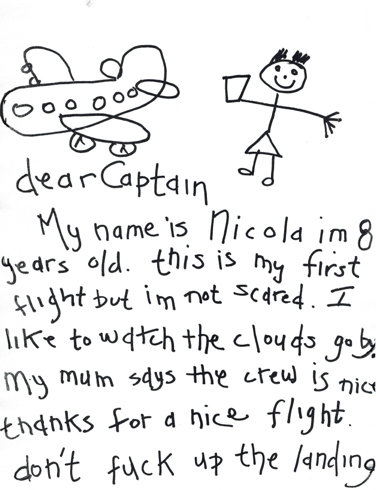 dear Captain
My name is Nicola im 8
years old. this is my first
flight but im not scared. I
like to watch the clouds go by.
My mum says the crew is nice
thanks for a nice flight.
don't fuck up the landing